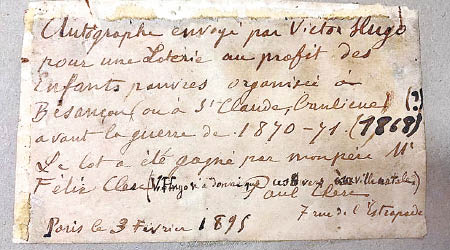 Autographe envoyé par Victor Hugo
pour une Loterie au profit des
enfants pauvres organisée à
Besançon (ou à St Claude, banlieue) (?)
avant la guerre de 1870-71. (1868)
Le lot a été gagné par mon père Mr
Félix Clerc (V. Hugo n'a donné que vers à sa ville natale)
Paul Clerc
7 rue de l'Estrapade
Paris le 3 Février 1895